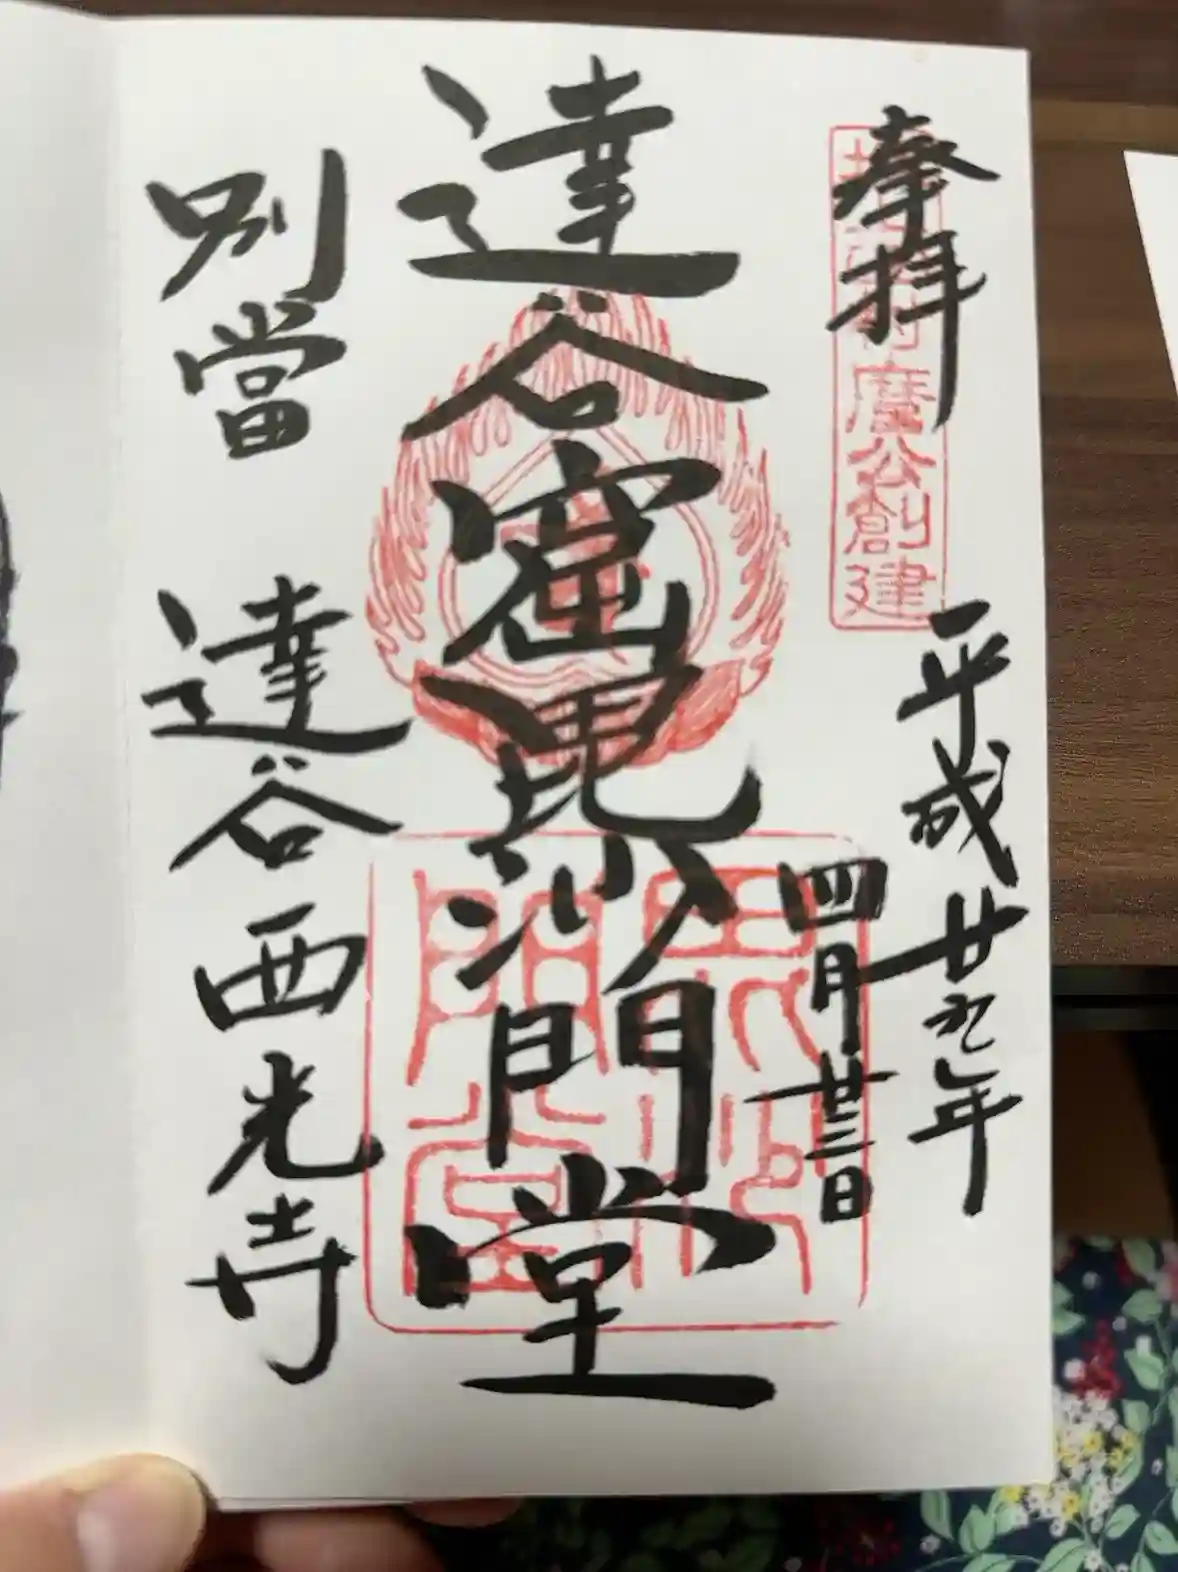 奉拝
平成廿九年
四月廿三日
麿公創建
達谷窟毘沙門堂
別當
達谷西光寺